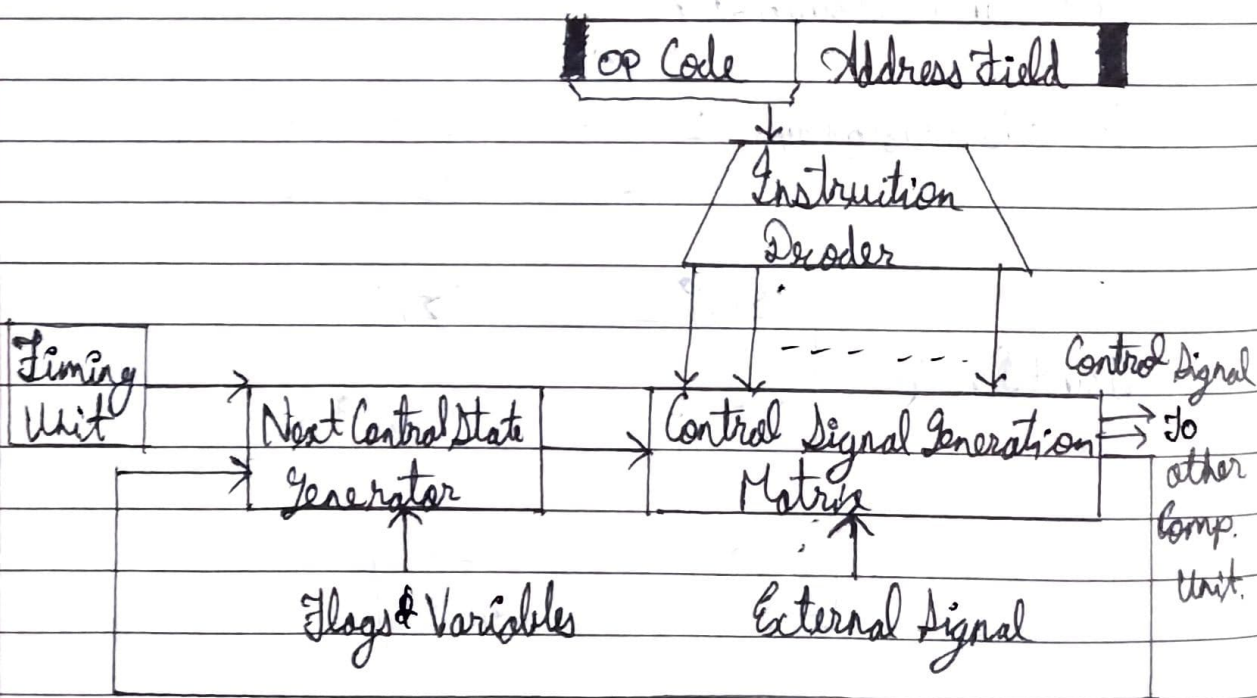 OP Code Address Field
Instruition
Decoder
Timing
Unit
Next Control State
Generator
Control Signal Generation
Matrix
Control Signal
To
other
Comp.
Unit.
Flags & Variables
External Signal